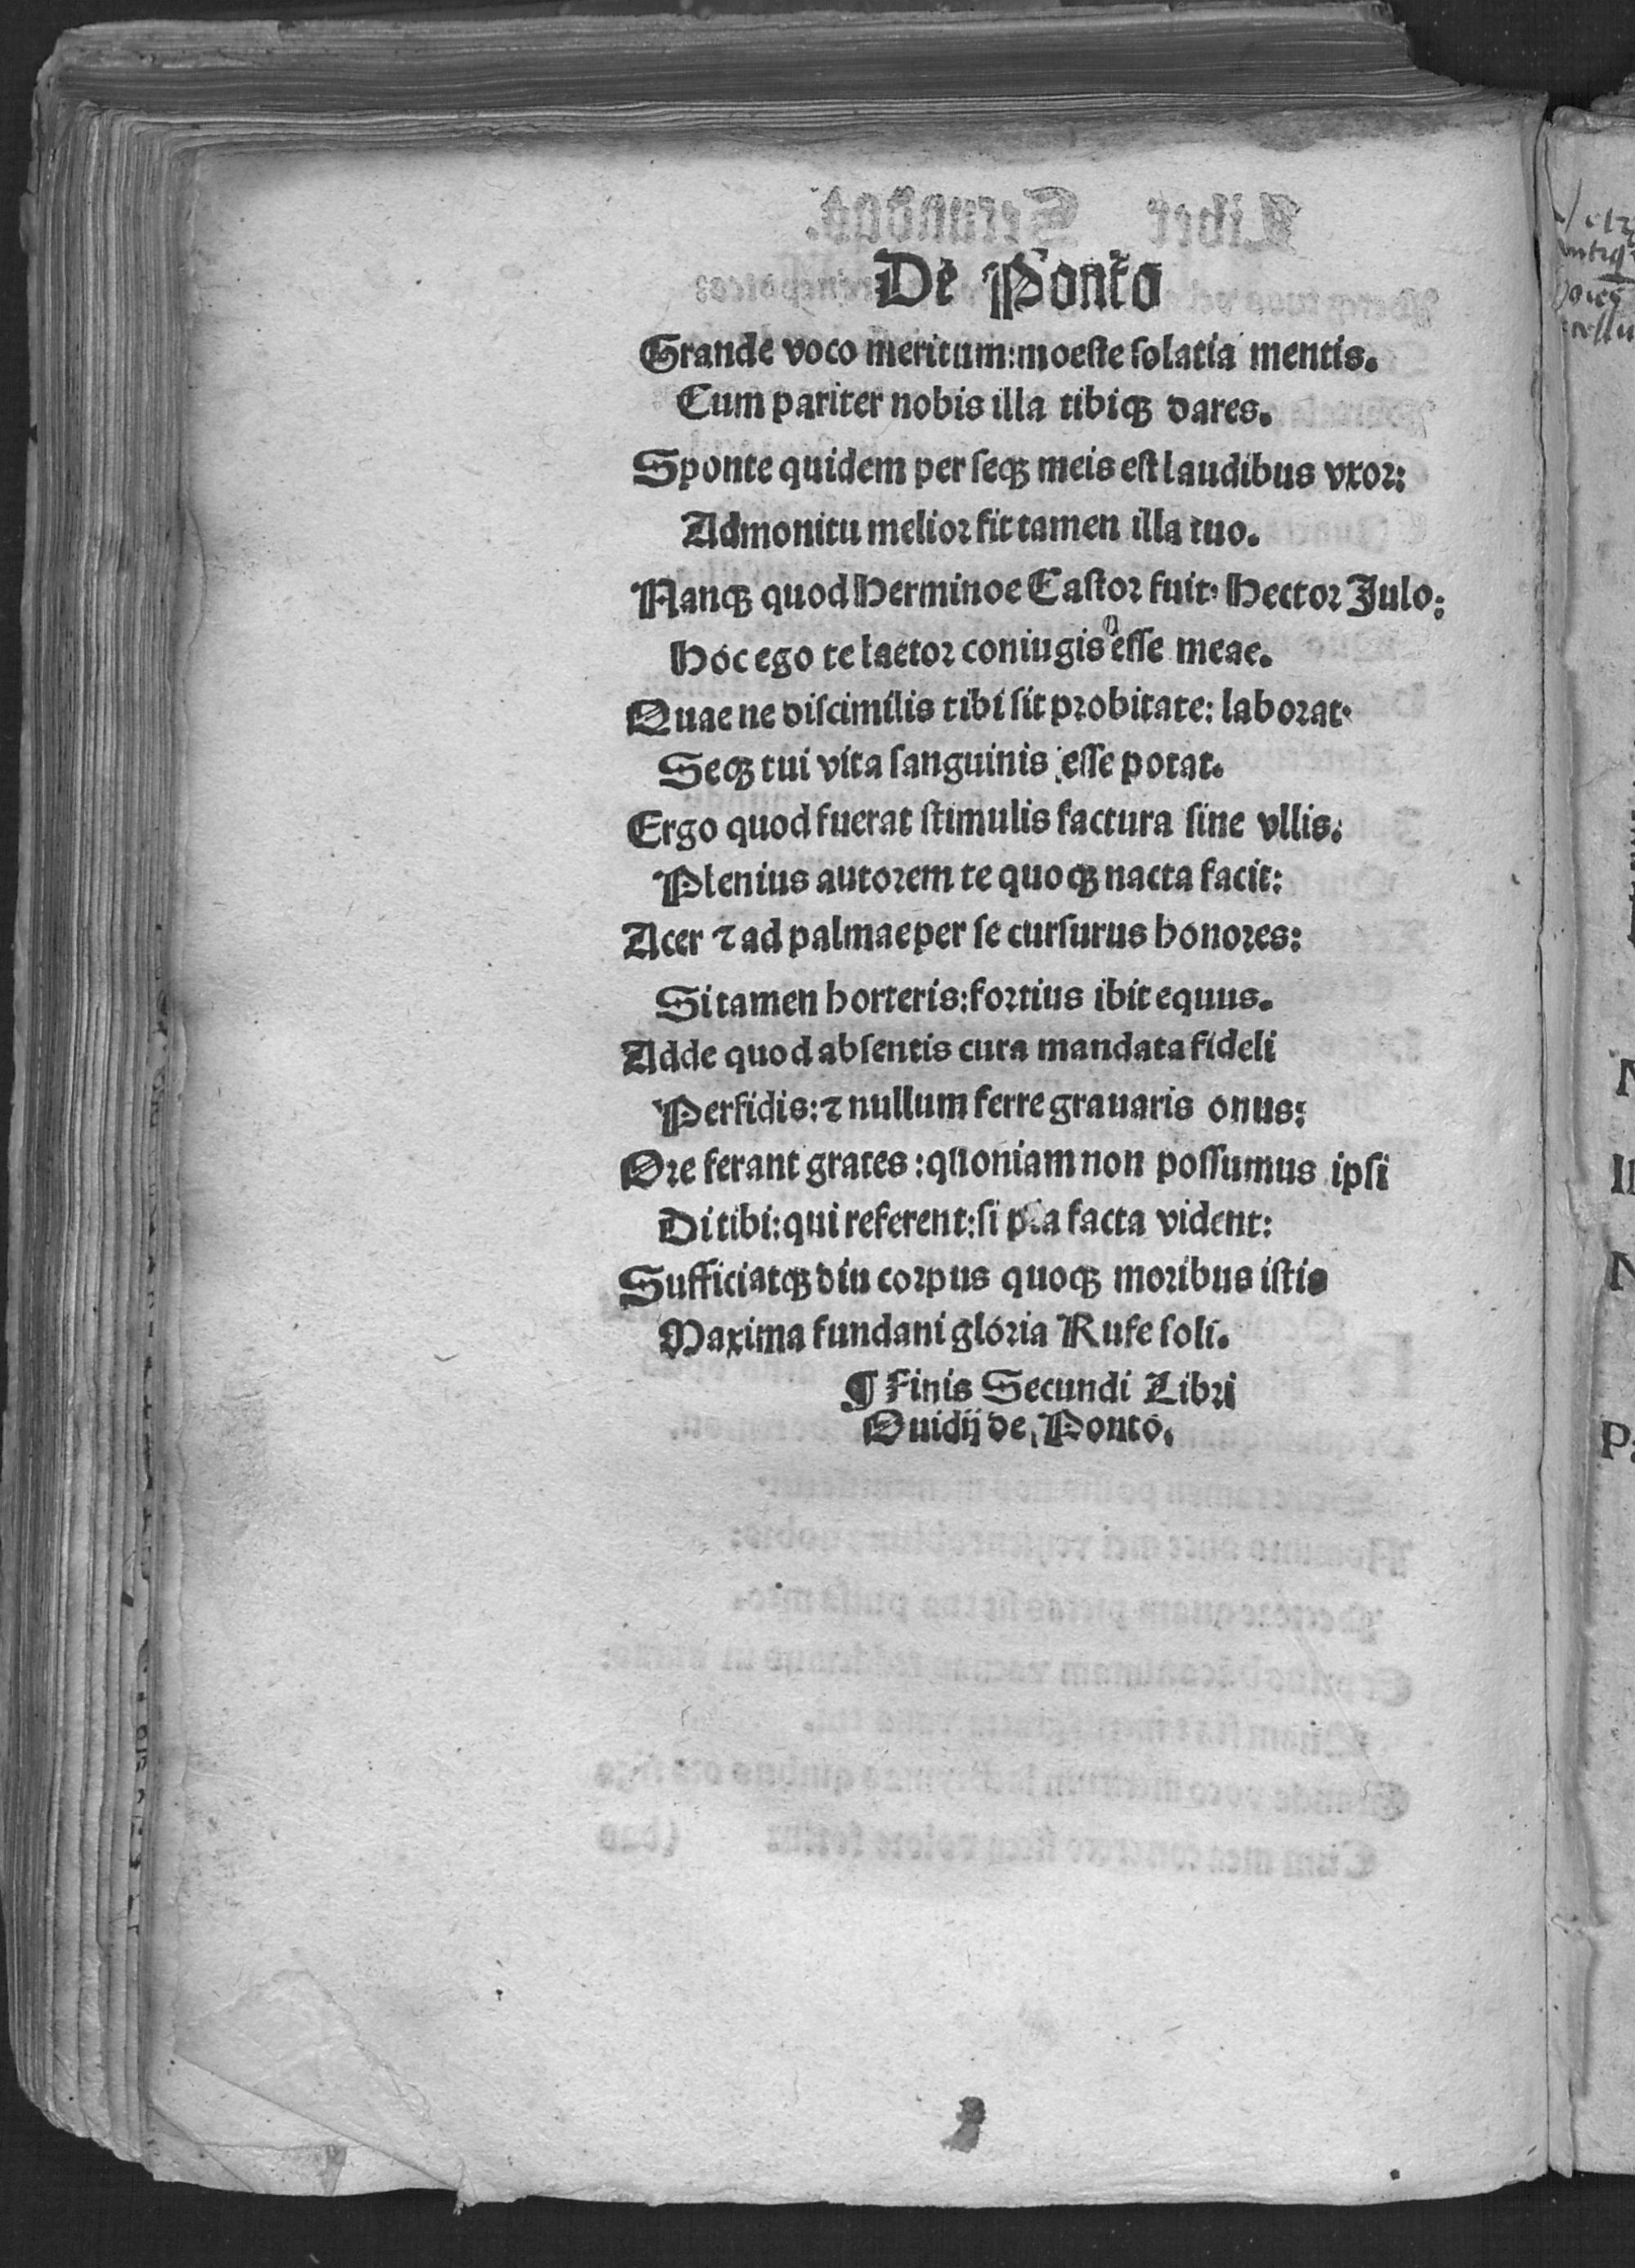 De Ponto
Grande voco meritum:moeste solatia mentis.
Cum pariter nobis illa tibiqꝫ dares.
Sponte quidem per seqꝫ meis est laudibus vxor:
Admonitu melior fit tamen illa tuo.
Nanqꝫ quod Herminoe Castor fuit· Hector Julo:
Hoc ego te laetor coniugis esse meae.
Quae ne discimilis tibi sit probitate: laborat·
Seqꝫ tui vita sanguinis esse potat.
Ergo quod fuerat stimulis factura sine vllis.
Plenius autorem te quoqꝫ nacta facit:
Acer ⁊ ad palmae per se cursurus honores:
Si tamen horteris:fortius ibit equus.
Adde quod absentis cura mandata fideli
Perfidis:⁊ nullum ferre grauaris onus:
Ore ferant grates :quoniam non possumus ipsi
Di tibi:qui referent:si pia facta vident:
Sufficiatqꝫ diu corpus quoqꝫ moribus istis
Maxima fundani gloria Rufe soli.
¶ Finis Secundi Libri
Ouidij de Ponto.